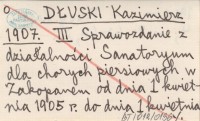 DŁUSKI Kazimierz
1907. III Sprawozdanie z
działalności Sanatoryum
dla chorych piersiowych w
Zakopanem od dnia 1 kwiet-
nia 1905 r. do dnia 1 kwietnia